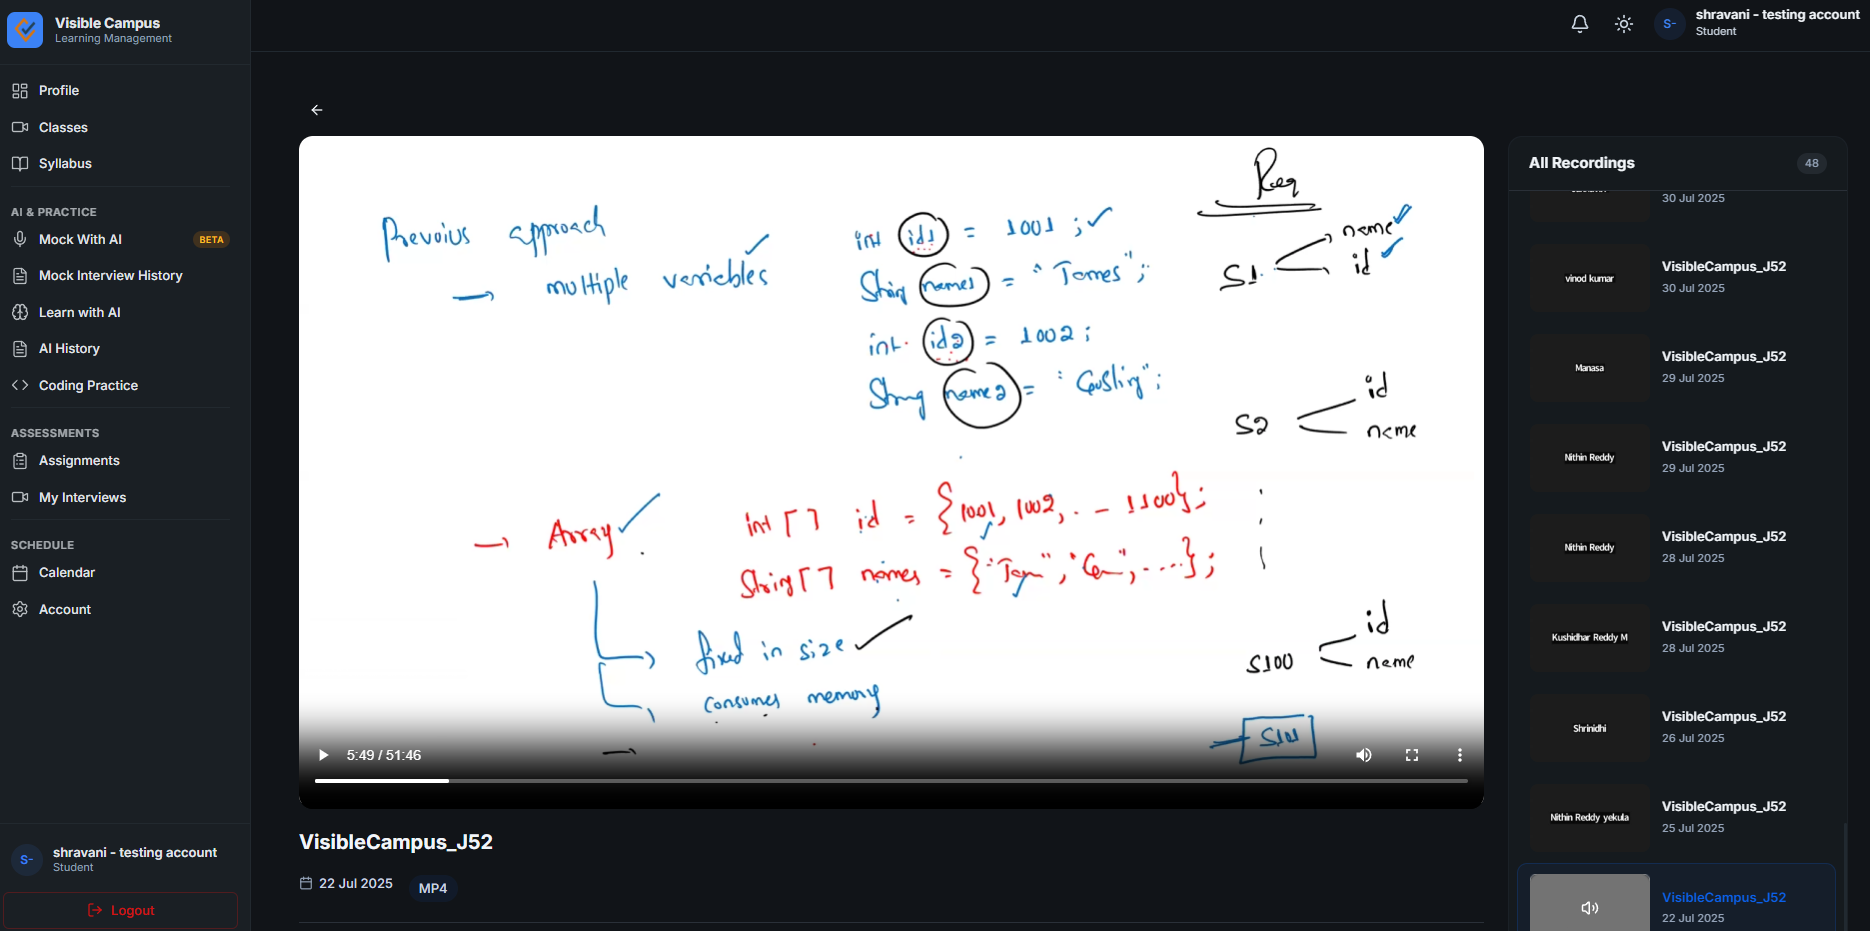 Visible Campus
Learning Management
Profile
Classes
Syllabus
AI & PRACTICE
Mock With AI BETA
Mock Interview History
Learn with AI
AI History
Coding Practice
ASSESSMENTS
Assignments
My Interviews
SCHEDULE
Calendar
Account
S-
shravani - testing account
Student
Logout
S-
shravani - testing account
Student
Prevoius approach
multiple variables
int id1 = 1001 ;
String name1 = "James";
int id2 = 1002 ;
String name2 = "Gosling";
Req
S1 name
id
S2 id
name
Array
int [] id = {1001, 1002, . . 1100};
String[] names = {"Jam", "Gos", ....};
fixed in size
consumes memory
S100 id
name
S101
5:49 / 51:46
VisibleCampus_J52
22 Jul 2025
MP4
All Recordings
48
30 Jul 2025
vinod kumar
VisibleCampus_J52
30 Jul 2025
Manasa
VisibleCampus_J52
29 Jul 2025
Nithin Reddy
VisibleCampus_J52
29 Jul 2025
Nithin Reddy
VisibleCampus_J52
28 Jul 2025
Kushidhar Reddy M
VisibleCampus_J52
28 Jul 2025
Shrinidhi
VisibleCampus_J52
26 Jul 2025
Nithin Reddy yekula
VisibleCampus_J52
25 Jul 2025
VisibleCampus_J52
22 Jul 2025